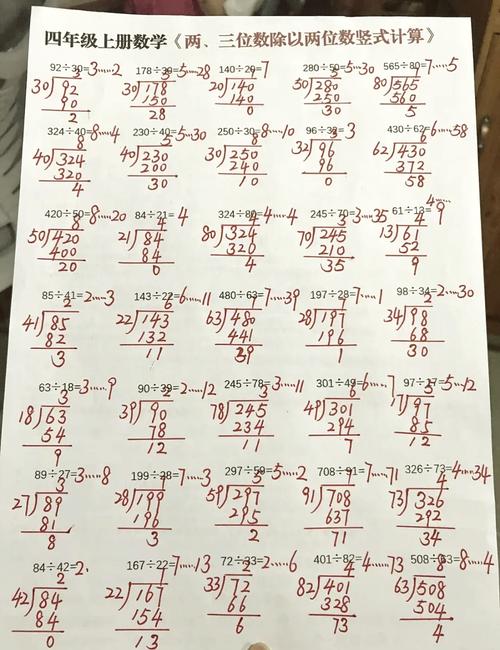 四年级上册数学《两、三位数除以两位数竖式计算》
92÷30=3……2 178÷30=5……28 140÷20=7 280÷50=5……30 565÷80=7……5
3 5 7 5 7
30 92 30 178 20 140 50 280 80 565
90 150 140 250 560
2 28 0 30 5
324÷40=8……4 230÷40=5……30 250÷30=8……10 96÷32=3 430÷62=6……58
8 5 8 3 6
40 324 40 230 30 250 32 96 62 430
320 200 240 96 372
4 30 10 0 58
420÷50=8……20 84÷21=4 324÷80=4……4 245÷70=3……35 61÷13=4……9
8 4 4 3 4
50 420 21 84 80 324 70 245 13 61
400 84 320 210 52
20 0 4 35 9
85÷41=2……3 143÷22=6……11 480÷63=7……39 197÷28=7……1 98÷34=2……30
2 6 7 7 2
41 85 22 143 63 480 28 197 34 98
82 132 441 196 68
3 11 39 1 30
63÷18=3……9 90÷39=2……12 245÷78=3……11 301÷49=6……7 97÷17=5……12
3 2 3 6 5
18 63 39 90 78 245 49 301 17 97
54 78 234 294 85
9 12 11 7 12
89÷27=3……8 199÷28=7……3 297÷59=5……2 708÷91=7……71 326÷73=4……34
3 7 5 7 4
27 89 28 199 59 297 91 708 73 326
81 196 295 637 292
8 3 2 71 34
84÷42=2. 167÷22=7……13 72÷33=2……6 401÷82=4……73 508÷63=8……4
2 7 2 4 8
42 84 22 167 33 72 82 401 63 508
84 154 66 328 504
0 13 6 73 4